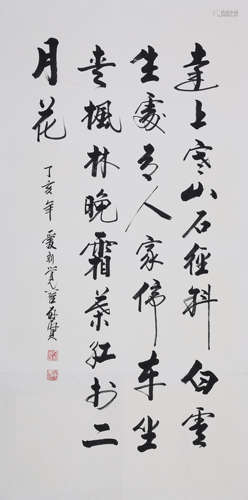 遠上寒山石徑斜白雲
生處有人家停車坐
愛楓林晚霜葉紅於二
月花
丁亥年 愛新覺羅